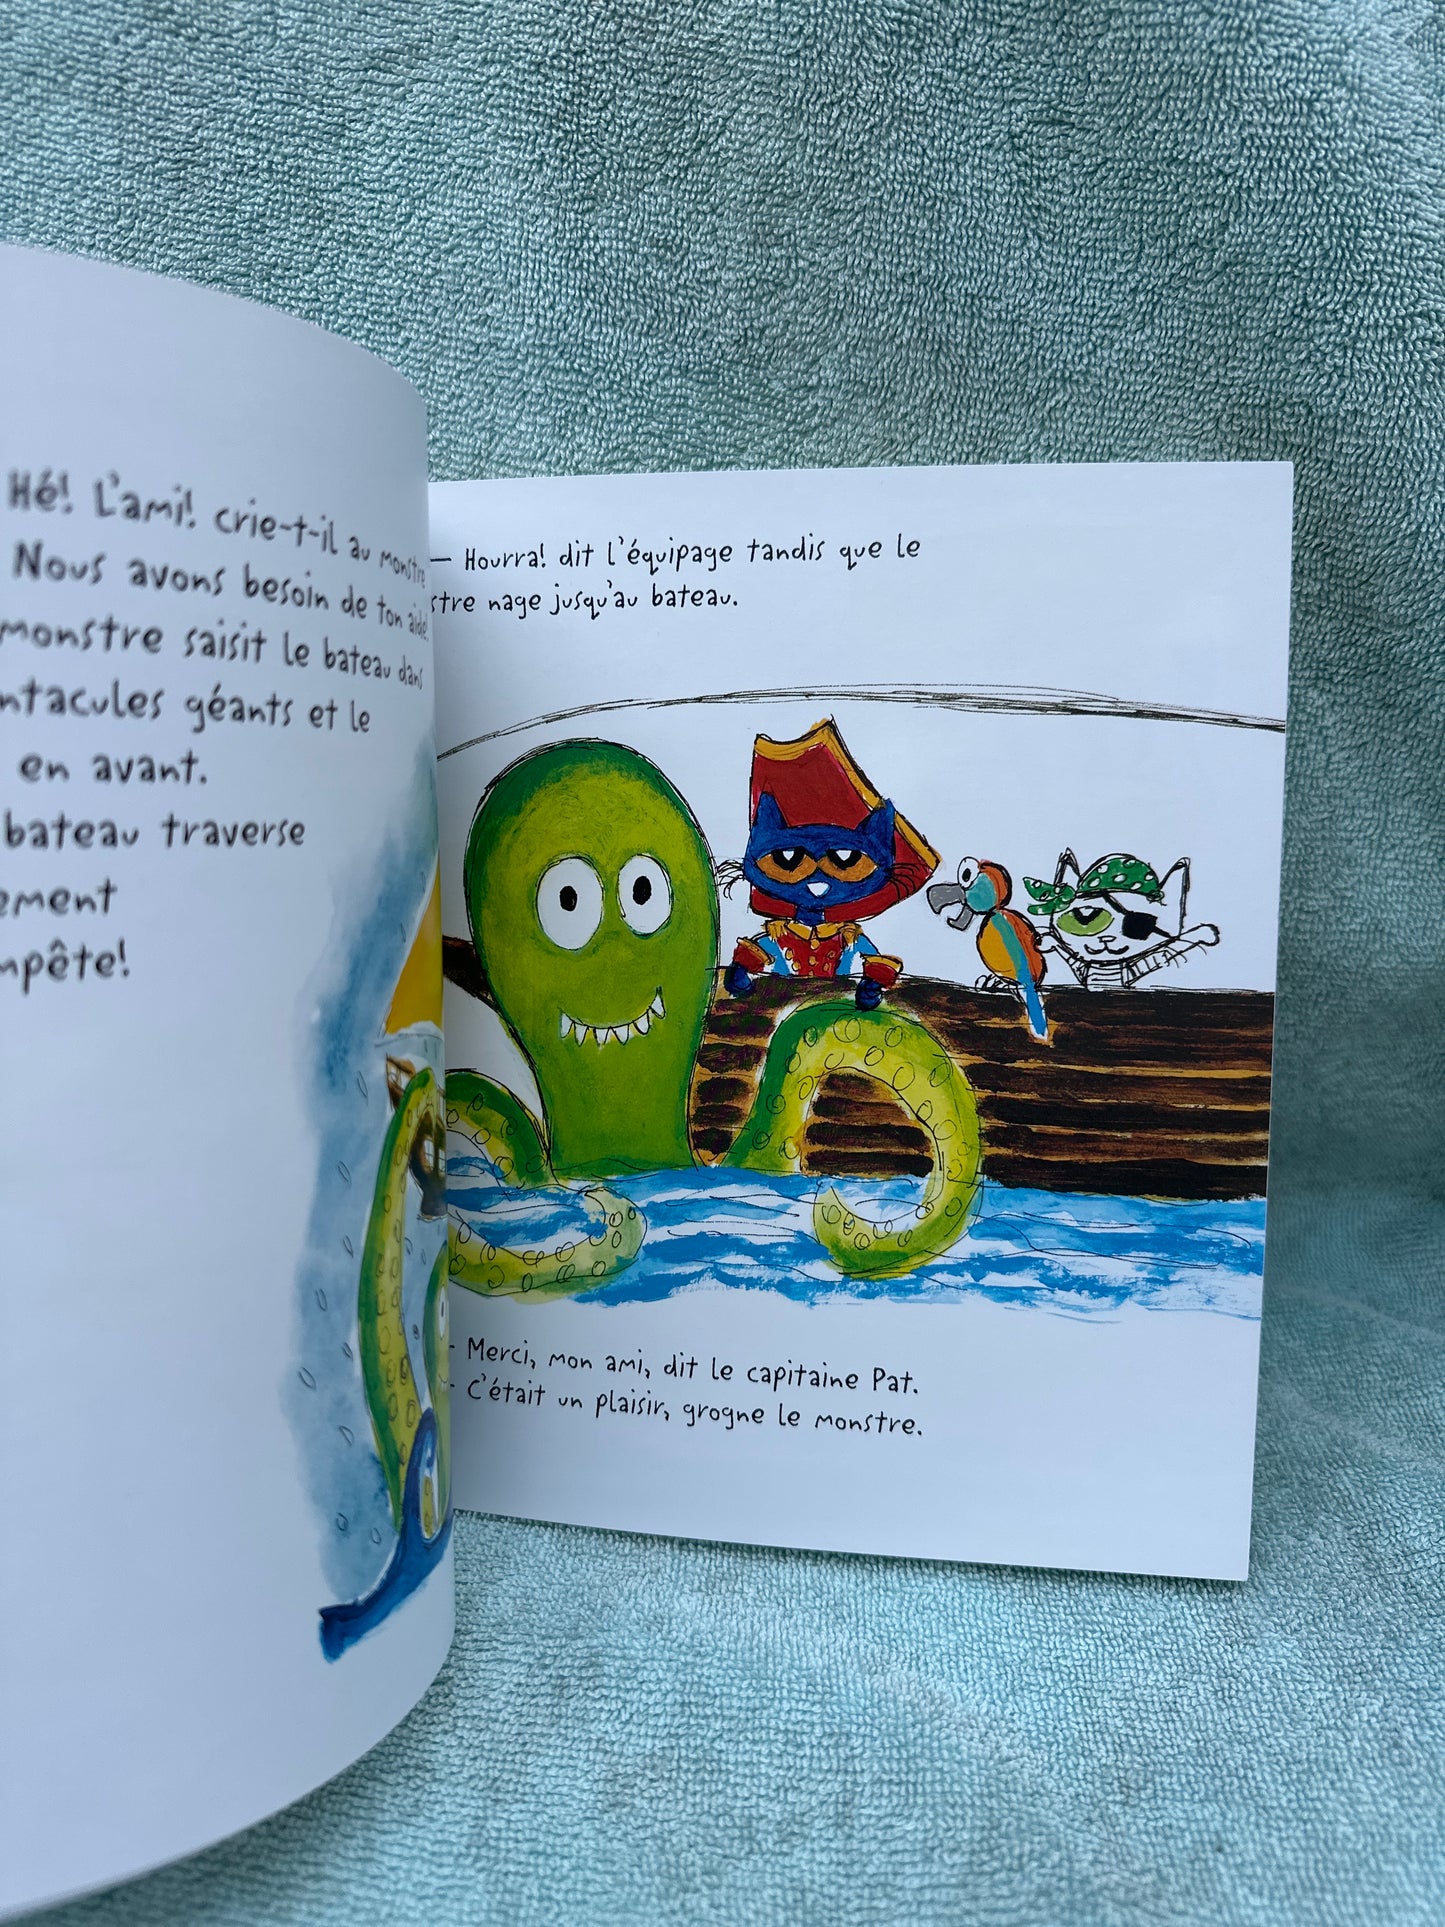 Hé! L'ami! crie-t-il au monstre
Nous avons besoin de ton aide!
monstre saisit le bateau dans
ntacules géants et le
en avant.
bateau traverse
ement
mpête!
— Hourra! dit l'équipage tandis que le
stre nage jusqu'au bateau.
- Merci, mon ami, dit le capitaine Pat.
- C'était un plaisir, grogne le monstre.